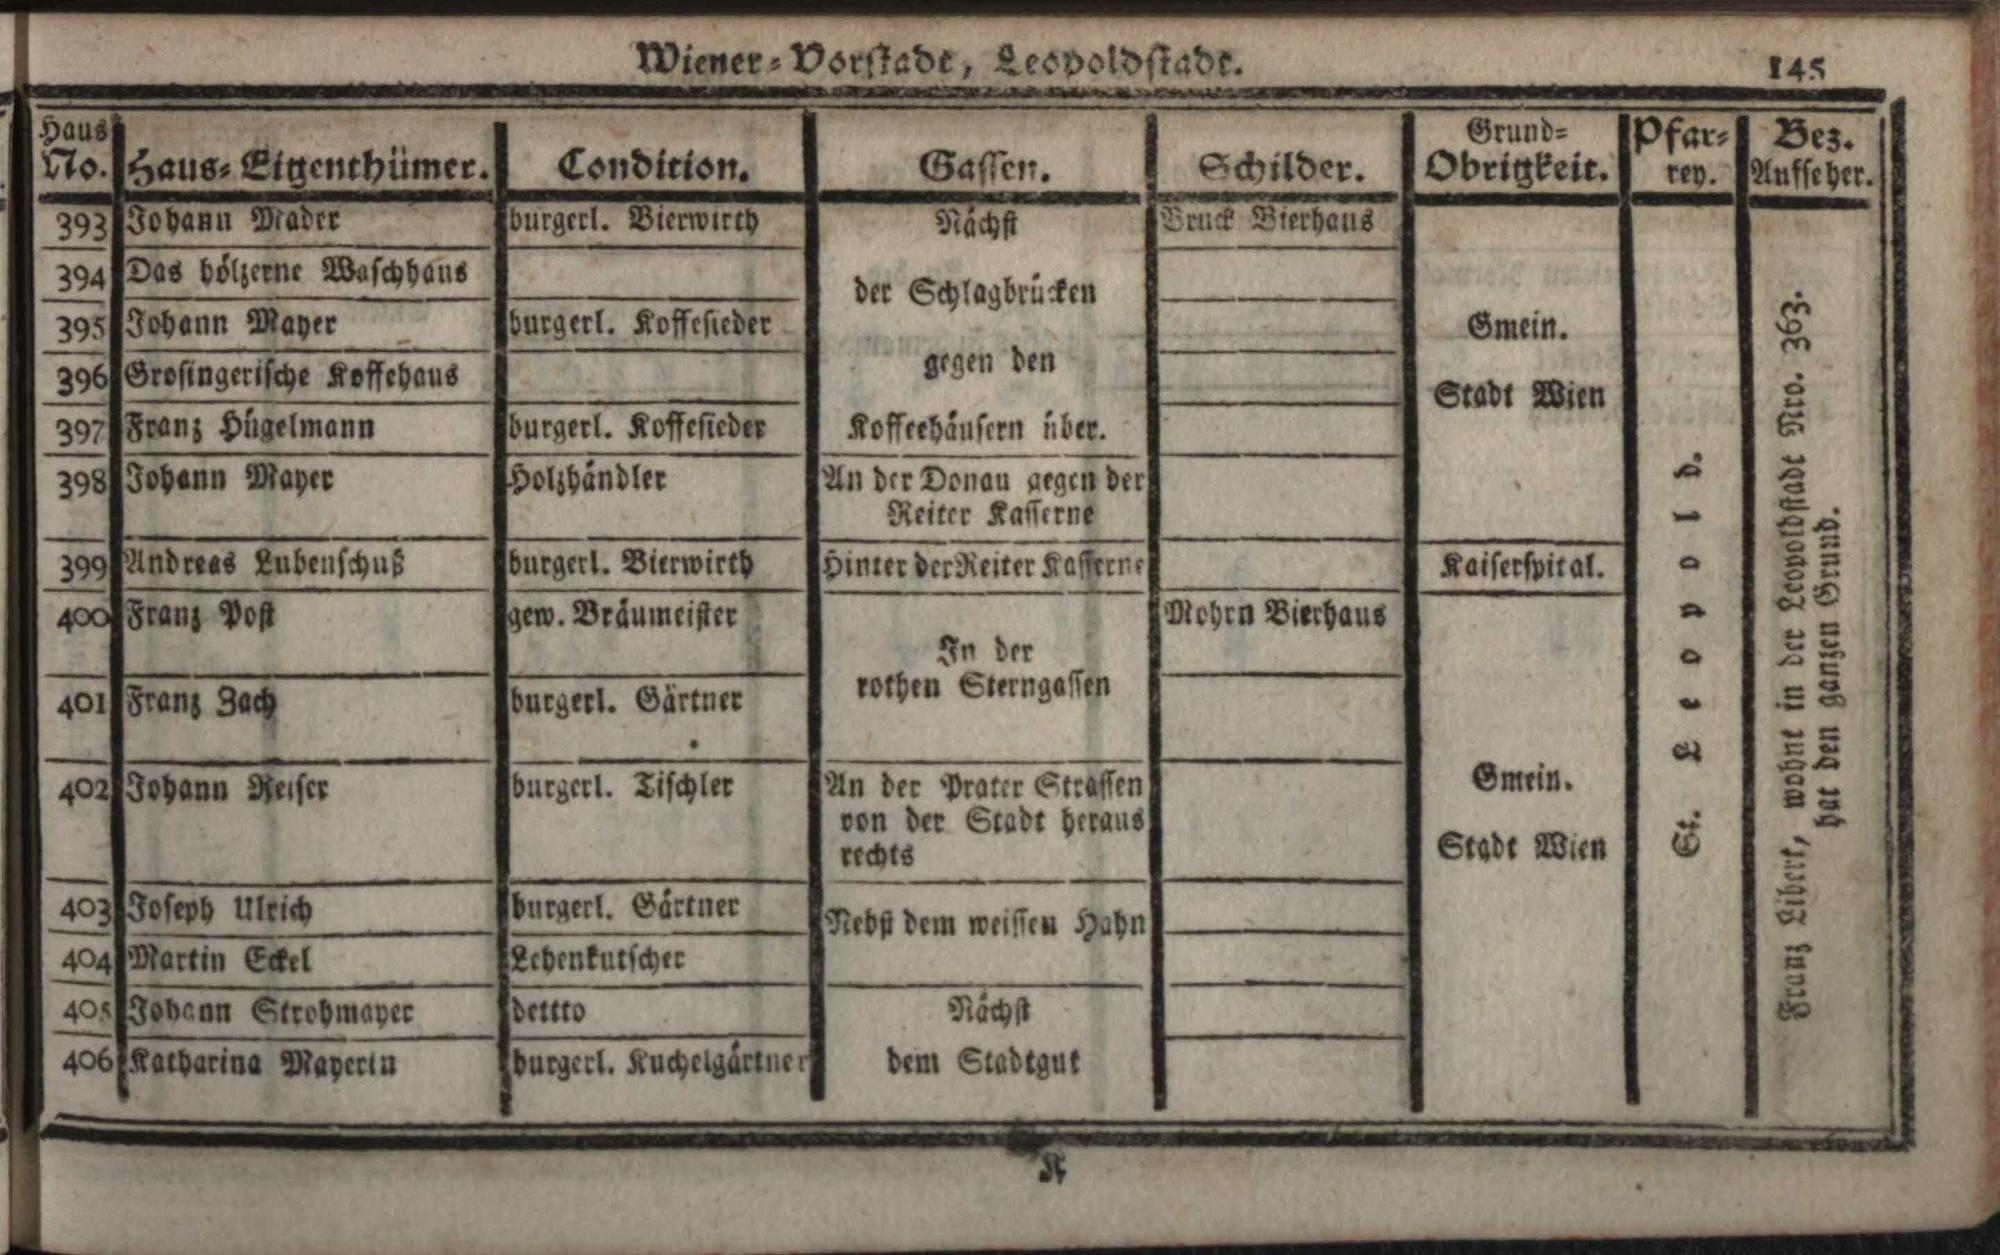 Wiener-Vorstadt, Leopoldstadt. 145
Haus No. Haus-Eigenthümer. Condition. Gassen. Schilder. Grund-Obrigkeit. Pfar-rey. Bez. Aufseher.
393 Johann Mader burgerl. Bierwirth Nächst Bruck Bierhaus
394 Das hölzerne Waschhaus der Schlagbrücken
395 Johann Mayer burgerl. Koffesieder Gmein.
396 Grosingerische Koffehaus gegen den Stadt Wien
397 Franz Hügelmann burgerl. Koffesieder Koffeehäusern über.
398 Johann Mayer Holzhändler An der Donau gegen der
Reiter Kasserne
399 Andreas Lubenschuß burgerl. Bierwirth Hinter der Reiter Kasserne Kaiserspital.
400 Franz Post gew. Bräumeister Mohrn Bierhaus
In der
rothen Sterngassen
401 Franz Zach burgerl. Gärtner
402 Johann Reiser burgerl. Tischler An der Prater Strassen Gmein.
von der Stadt heraus
rechts Stadt Wien
403 Joseph Ulrich burgerl. Gärtner Nebst dem weissen Hahn
404 Martin Eckel Lehenkutscher
405 Johann Strohmayer dettto Nächst
406 Katharina Mayerin burgerl. Kuchelgärtner dem Stadtgut
St. Leopold.
Franz Libert, wohnt in der Leopoldstadt Nro. 363.
hat den ganzen Grund.
K